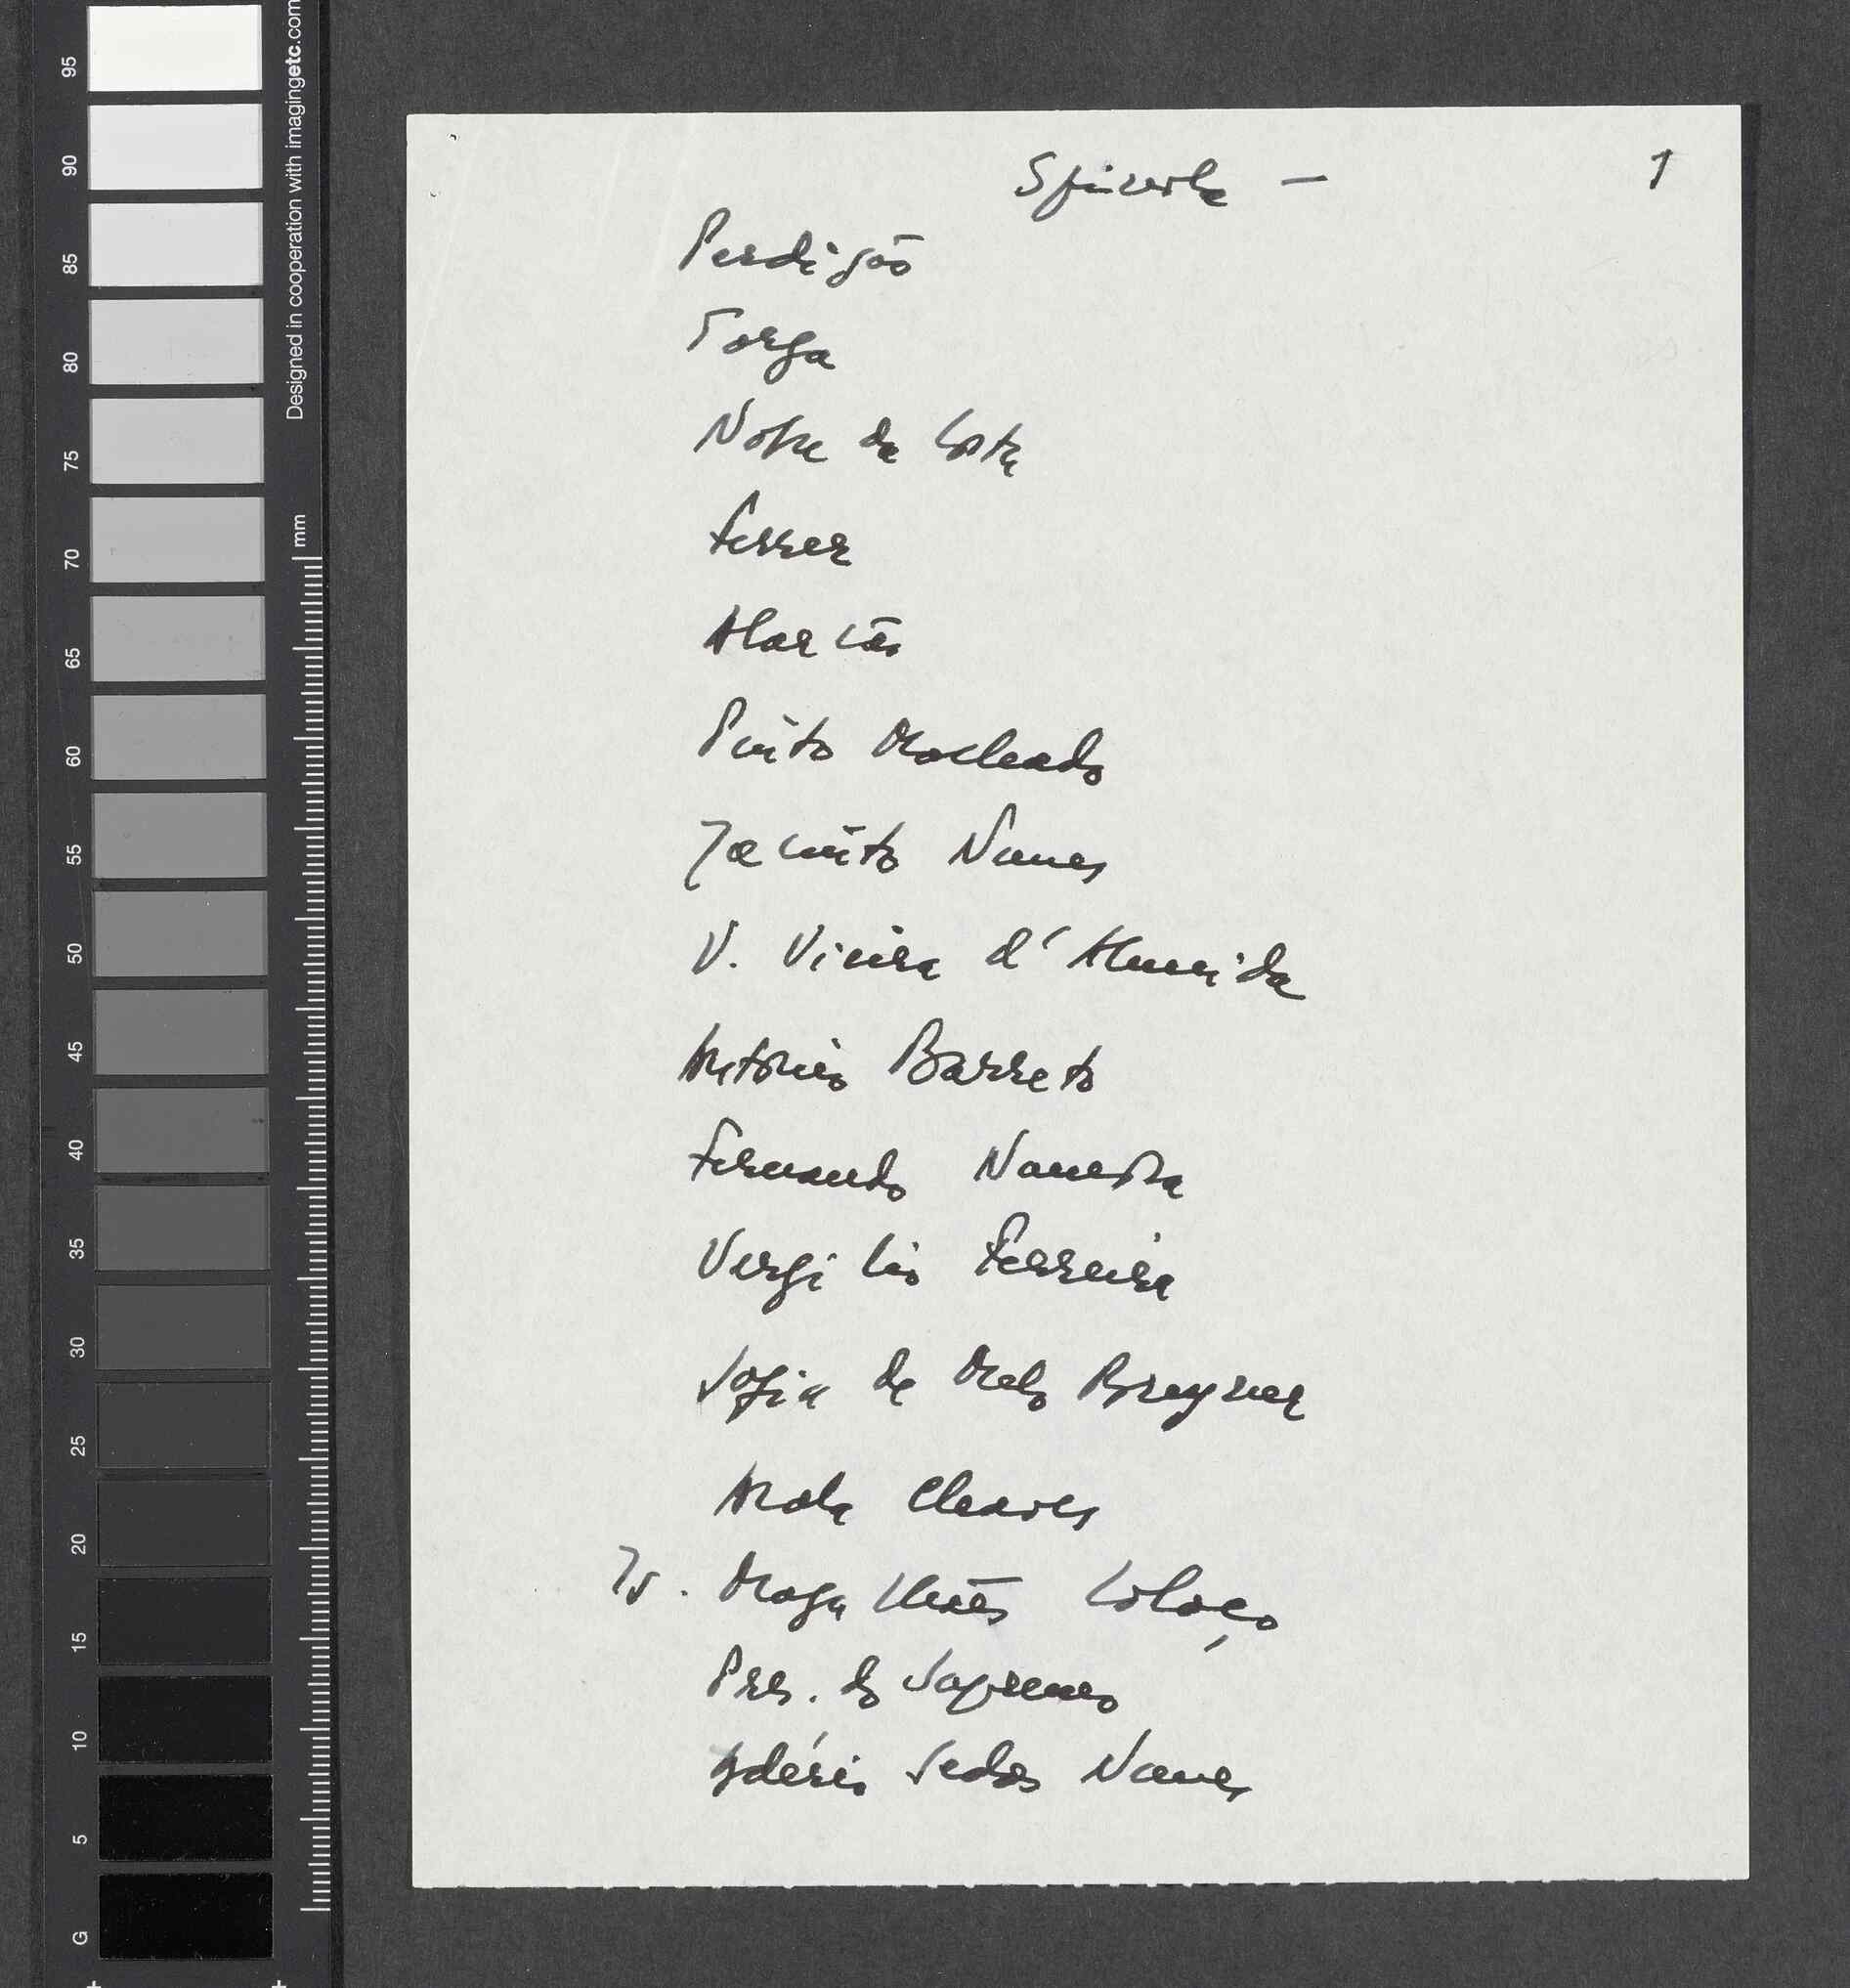 Spínola — 1
Perdigão
Torga
Nobre da Costa
Ferrer
Alarcão
Pinto Machado
Jacinto Nunes
V. Vieira d'Almeida
António Barreto
Fernando Namora
Vergílio Ferreira
Sofia de Melo Breyner
Arala Chaves
Is. Magalhães Colaço
Pres. do Supremo
Adérito Sedas Nunes
95
90
85
80
75
70
65
60
55
50
45
40
35
30
25
20
15
10
5
G
Designed in cooperation with imagingetc.com
mm